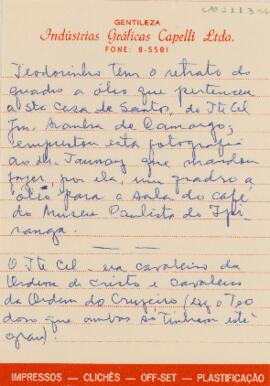 GENTILEZA
Indústrias Gráficas Capelli Ltda.
FONE: 8-5581
Teodorinho tem o retrato do
quadro a óleo que pertenceu
a Sta Casa de Santos, do Tte Cel
Jm. Aranha de Camargo;
emprestou esta fotografia
ao dr. Taunay que mandou
fazer, por ela, um quadro a
óleo para a sala do café
do Museu Paulista do Ipi-
ranga.
O Tte Cel. era cavaleiro da
Ordem de Cristo e cavaleiro
da Ordem do Cruzeiro (diz o Teo
doro que ambas só tinham este
grau).
IMPRESSOS — CLICHÊS — OFF-SET — PLASTIFICAÇÃO